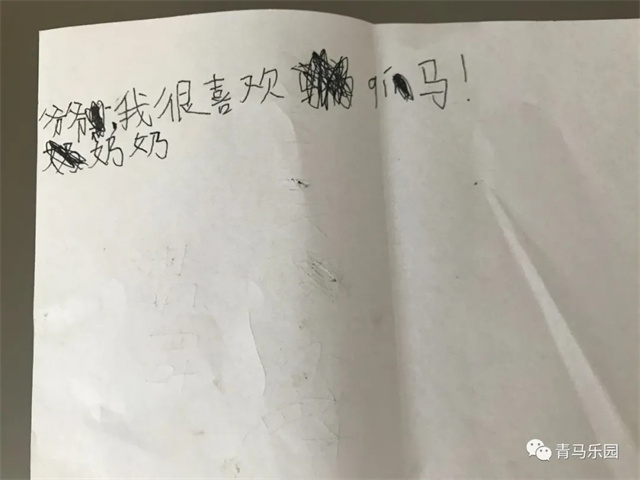 爷爷,我很喜欢qi马!
奶奶
青马乐园